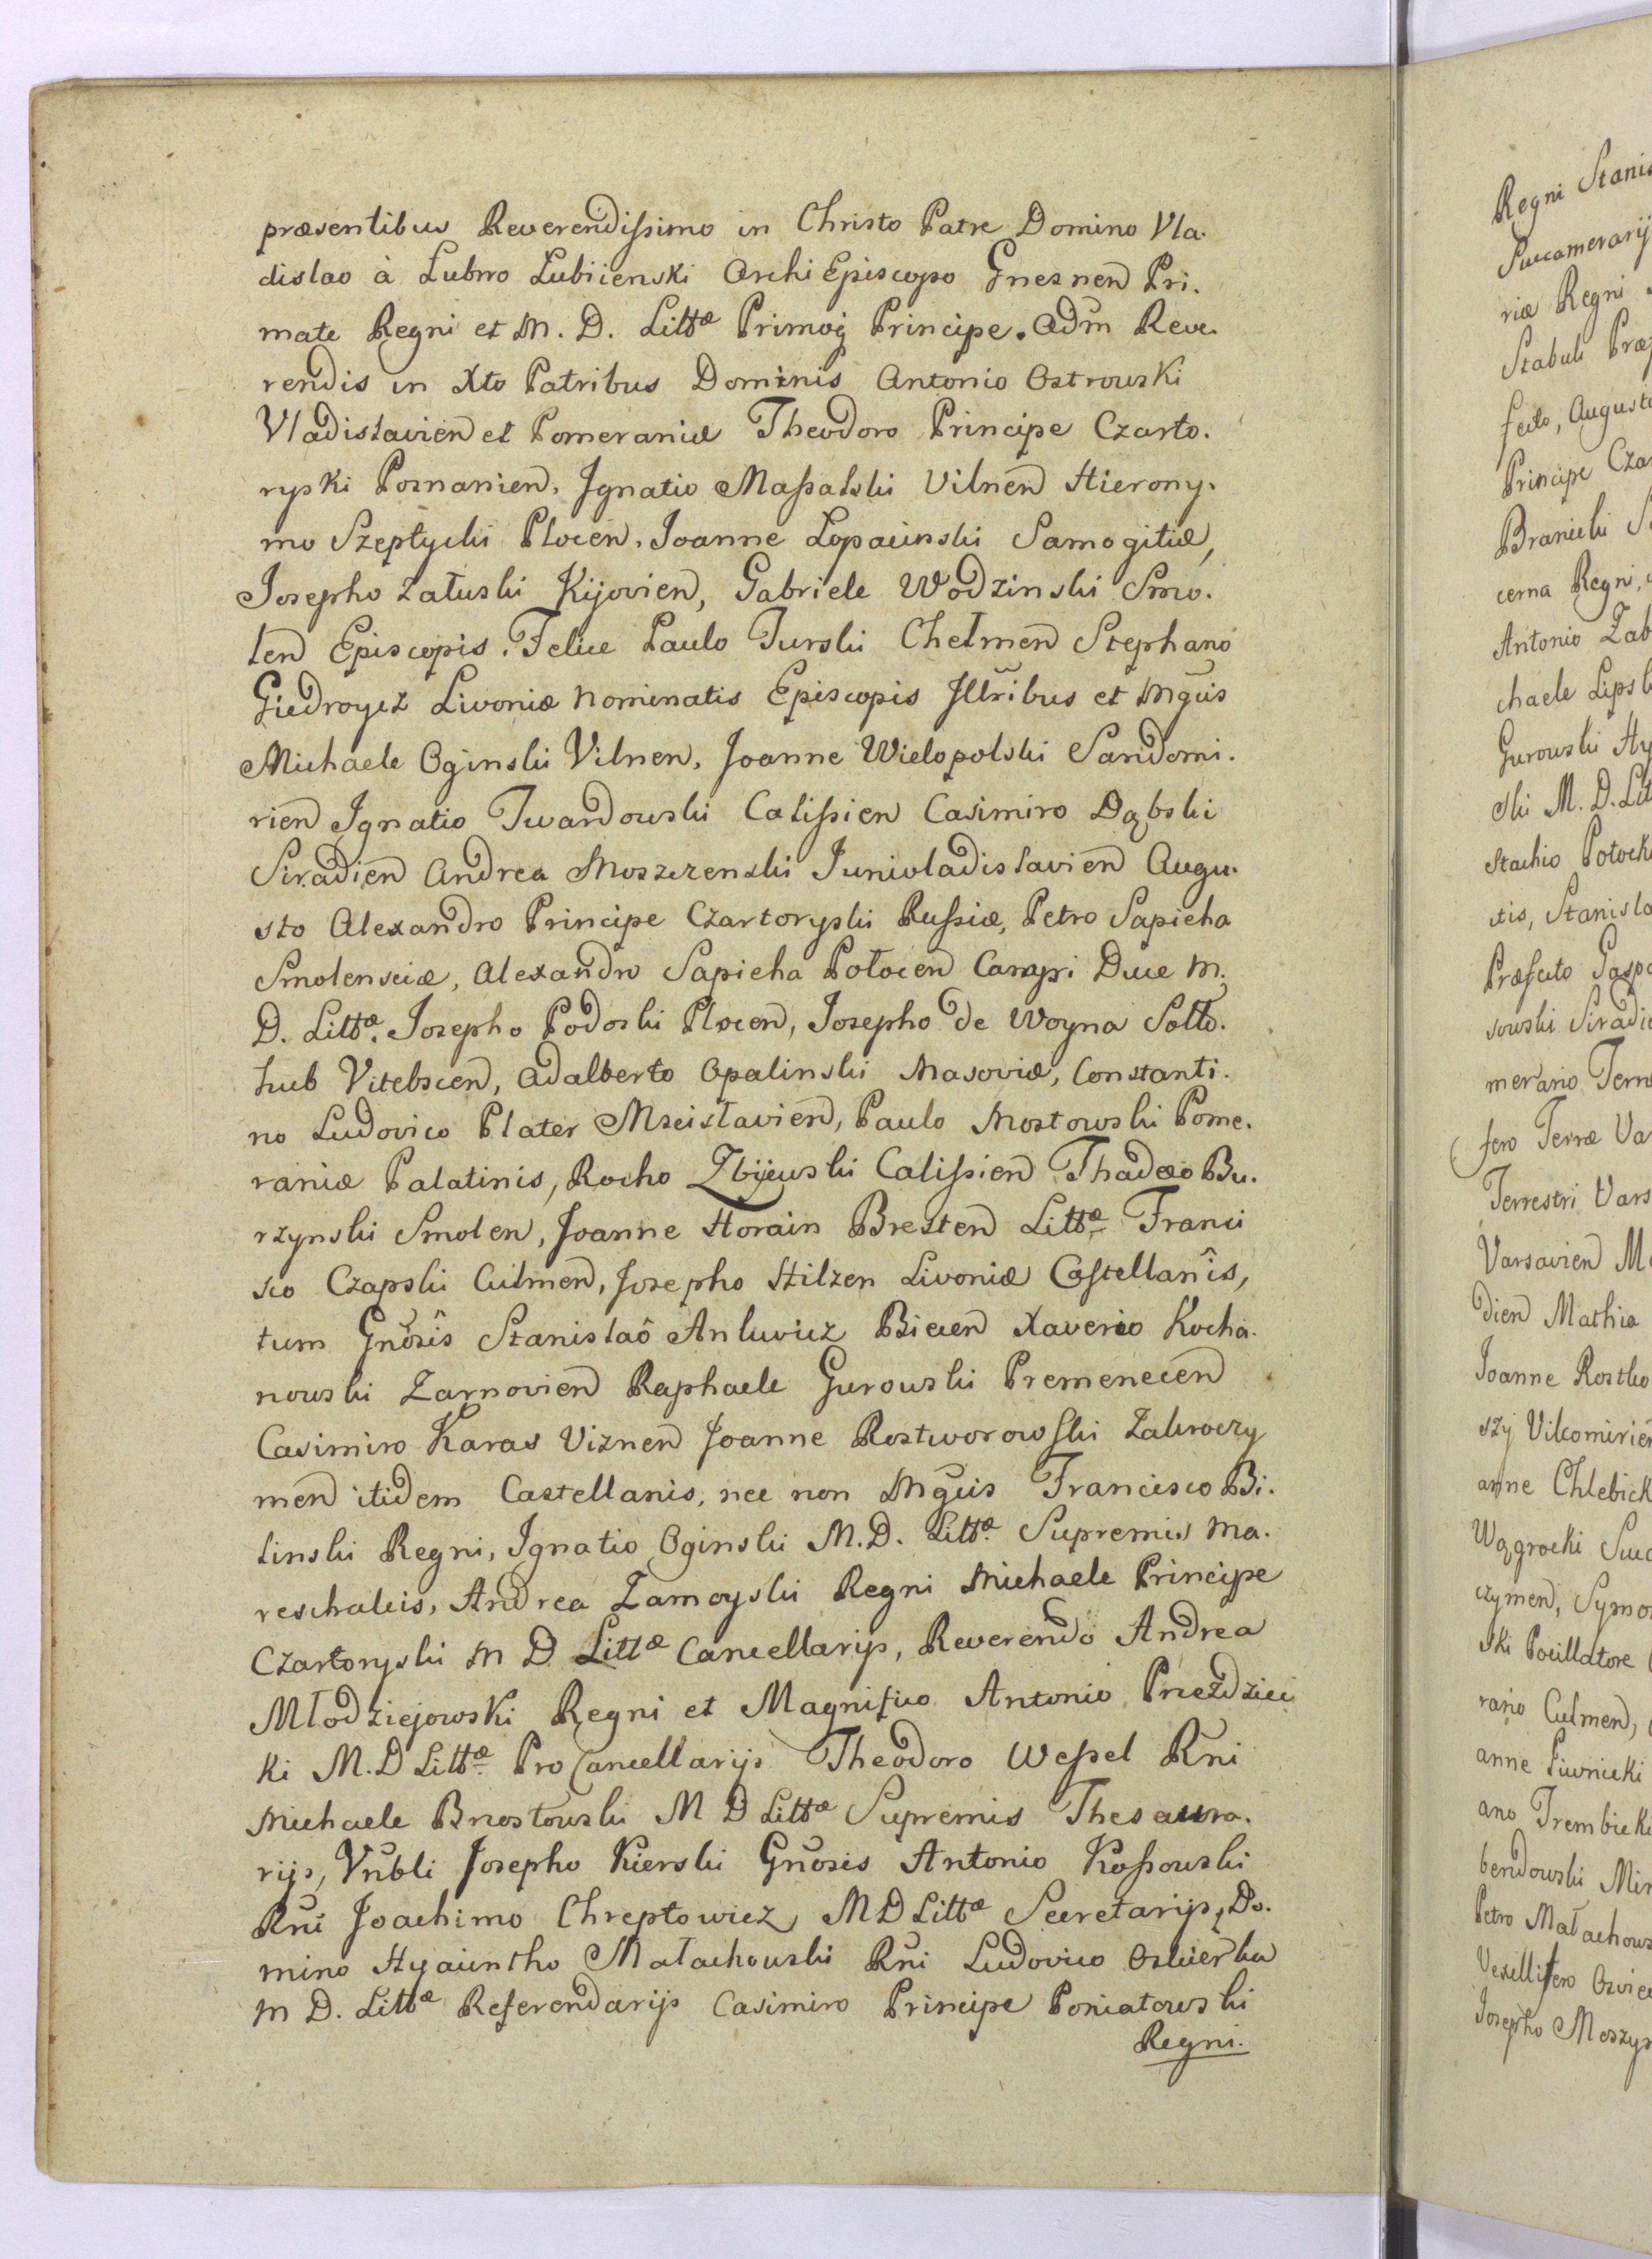 præsentibus Reverendißimo in Christo Patre Domino Vla.
dislao à Lubno Lubiienski Archi Episcopo Gnesnen Pri.
mate Regni et M. D. Littæ Primoq Principe. Adm Reve.
rendis in Xto Patribus Dominis Antonio Ostrowski
Vladislavien et Pomeraniæ Theodoro Principe Czarto.
ryski Posnanien, Ignatio Maßalski Vilnen Hierony.
mo Szeptycki Plocen, Joanne Łopacinski Samogitiæ,
Josepho Załuski Kijovien, Gabriele Wodzinski Smo.
len Episcopis, Felice Paulo Turski Chełmen Stephano
Giedroycz Livoniæ nominatis Episcopis Jllribus et Mgcis
Michaele Oginski Vilnen, Joanne Wielopolski Sandomi.
rien Ignatio Twardowski Calißien Casimiro Dąbski
Siradien Andrea Moszczenski Juniuladislavien Augu.
sto Alexandro Principe Czartoryski Rußiæ, Petro Sapieha
Smolensciæ, Alexandro Sapieha Połocen Campi Duce M.
D. Littæ. Josepho Podoski Plocen, Josepho de Woyna Sołło.
hub Vitebscen, Adalberto Opalinski Masoviæ, Constanti.
no Ludovico Plater Mscislavien, Paulo Mostowski Pome.
raniæ Palatinis, Rocho Zbijewski Calißien Thadæo Bu.
rzynski Smolen, Joanne Horain Bresten Littæ Franci
sco Czapski Culmen, Josepho Hilzen Livoniæ Castellanîs,
tum Gnosîs Stanislaô Ankwicz Biecen Xaverio Kocha.
nowski Zarnovien Raphaele Gurowski Premenecen
Casimiro Karas Viznen Joanne Rostworowski Zakroczy
men itidem Castellanis, nec non Mgcis Francisco Bi.
linski Regni, Ignatio Oginski M.D. Littæ Supremis Ma.
reschalcis, Andrea Zamoyski Regni Michaele Principe
Czartoryski M D Littæ Cancellarijs, Reverendo Andrea
Młodziejowski Regni et Magnifico Antonio Przezdziec
ki M.D Littæ Pro Cancellarijs Theodoro Weßel Rni
Michaele Brzostowski M D Littæ Supremis Thesaura.
rijs, Vnbli Josepho Kierski Gnosis Antonio Koßowski
Rni Joachimo Chreptowicz M D Littæ Secretarijs, Do.
mino Hyacintho Małachowski Rni Ludovico Oskierka
M D. Littæ Referendarijs Casimiro Principe Poniatowski
Regni.
Regni Stanis
Succamerarij
riæ Regni
Stabuli Præ
fecto, Augusto
Principe Czar
Branicki
cerna Regni,
Antonio Zab
chaele Lipsk
Gurowski Hy
ski M. D. Lit
stachio Potock
tis, Stanisla
Præfecto Gaspa
sowski Siradie
merario Terr
fero Terræ Va
Terrestri Vars
Varsavien M
dien Mathia
Joanne Rostko
szy Vilcomirien
anne Chlebick
Wągrocki Succ
czymen, Symo
ski Pocillatore
rario Culmen,
anne Piwnicki
ano Trembicki
bendowski Mir
Petro Małachows
Vexillifero Osviec
Josepho Moszyn